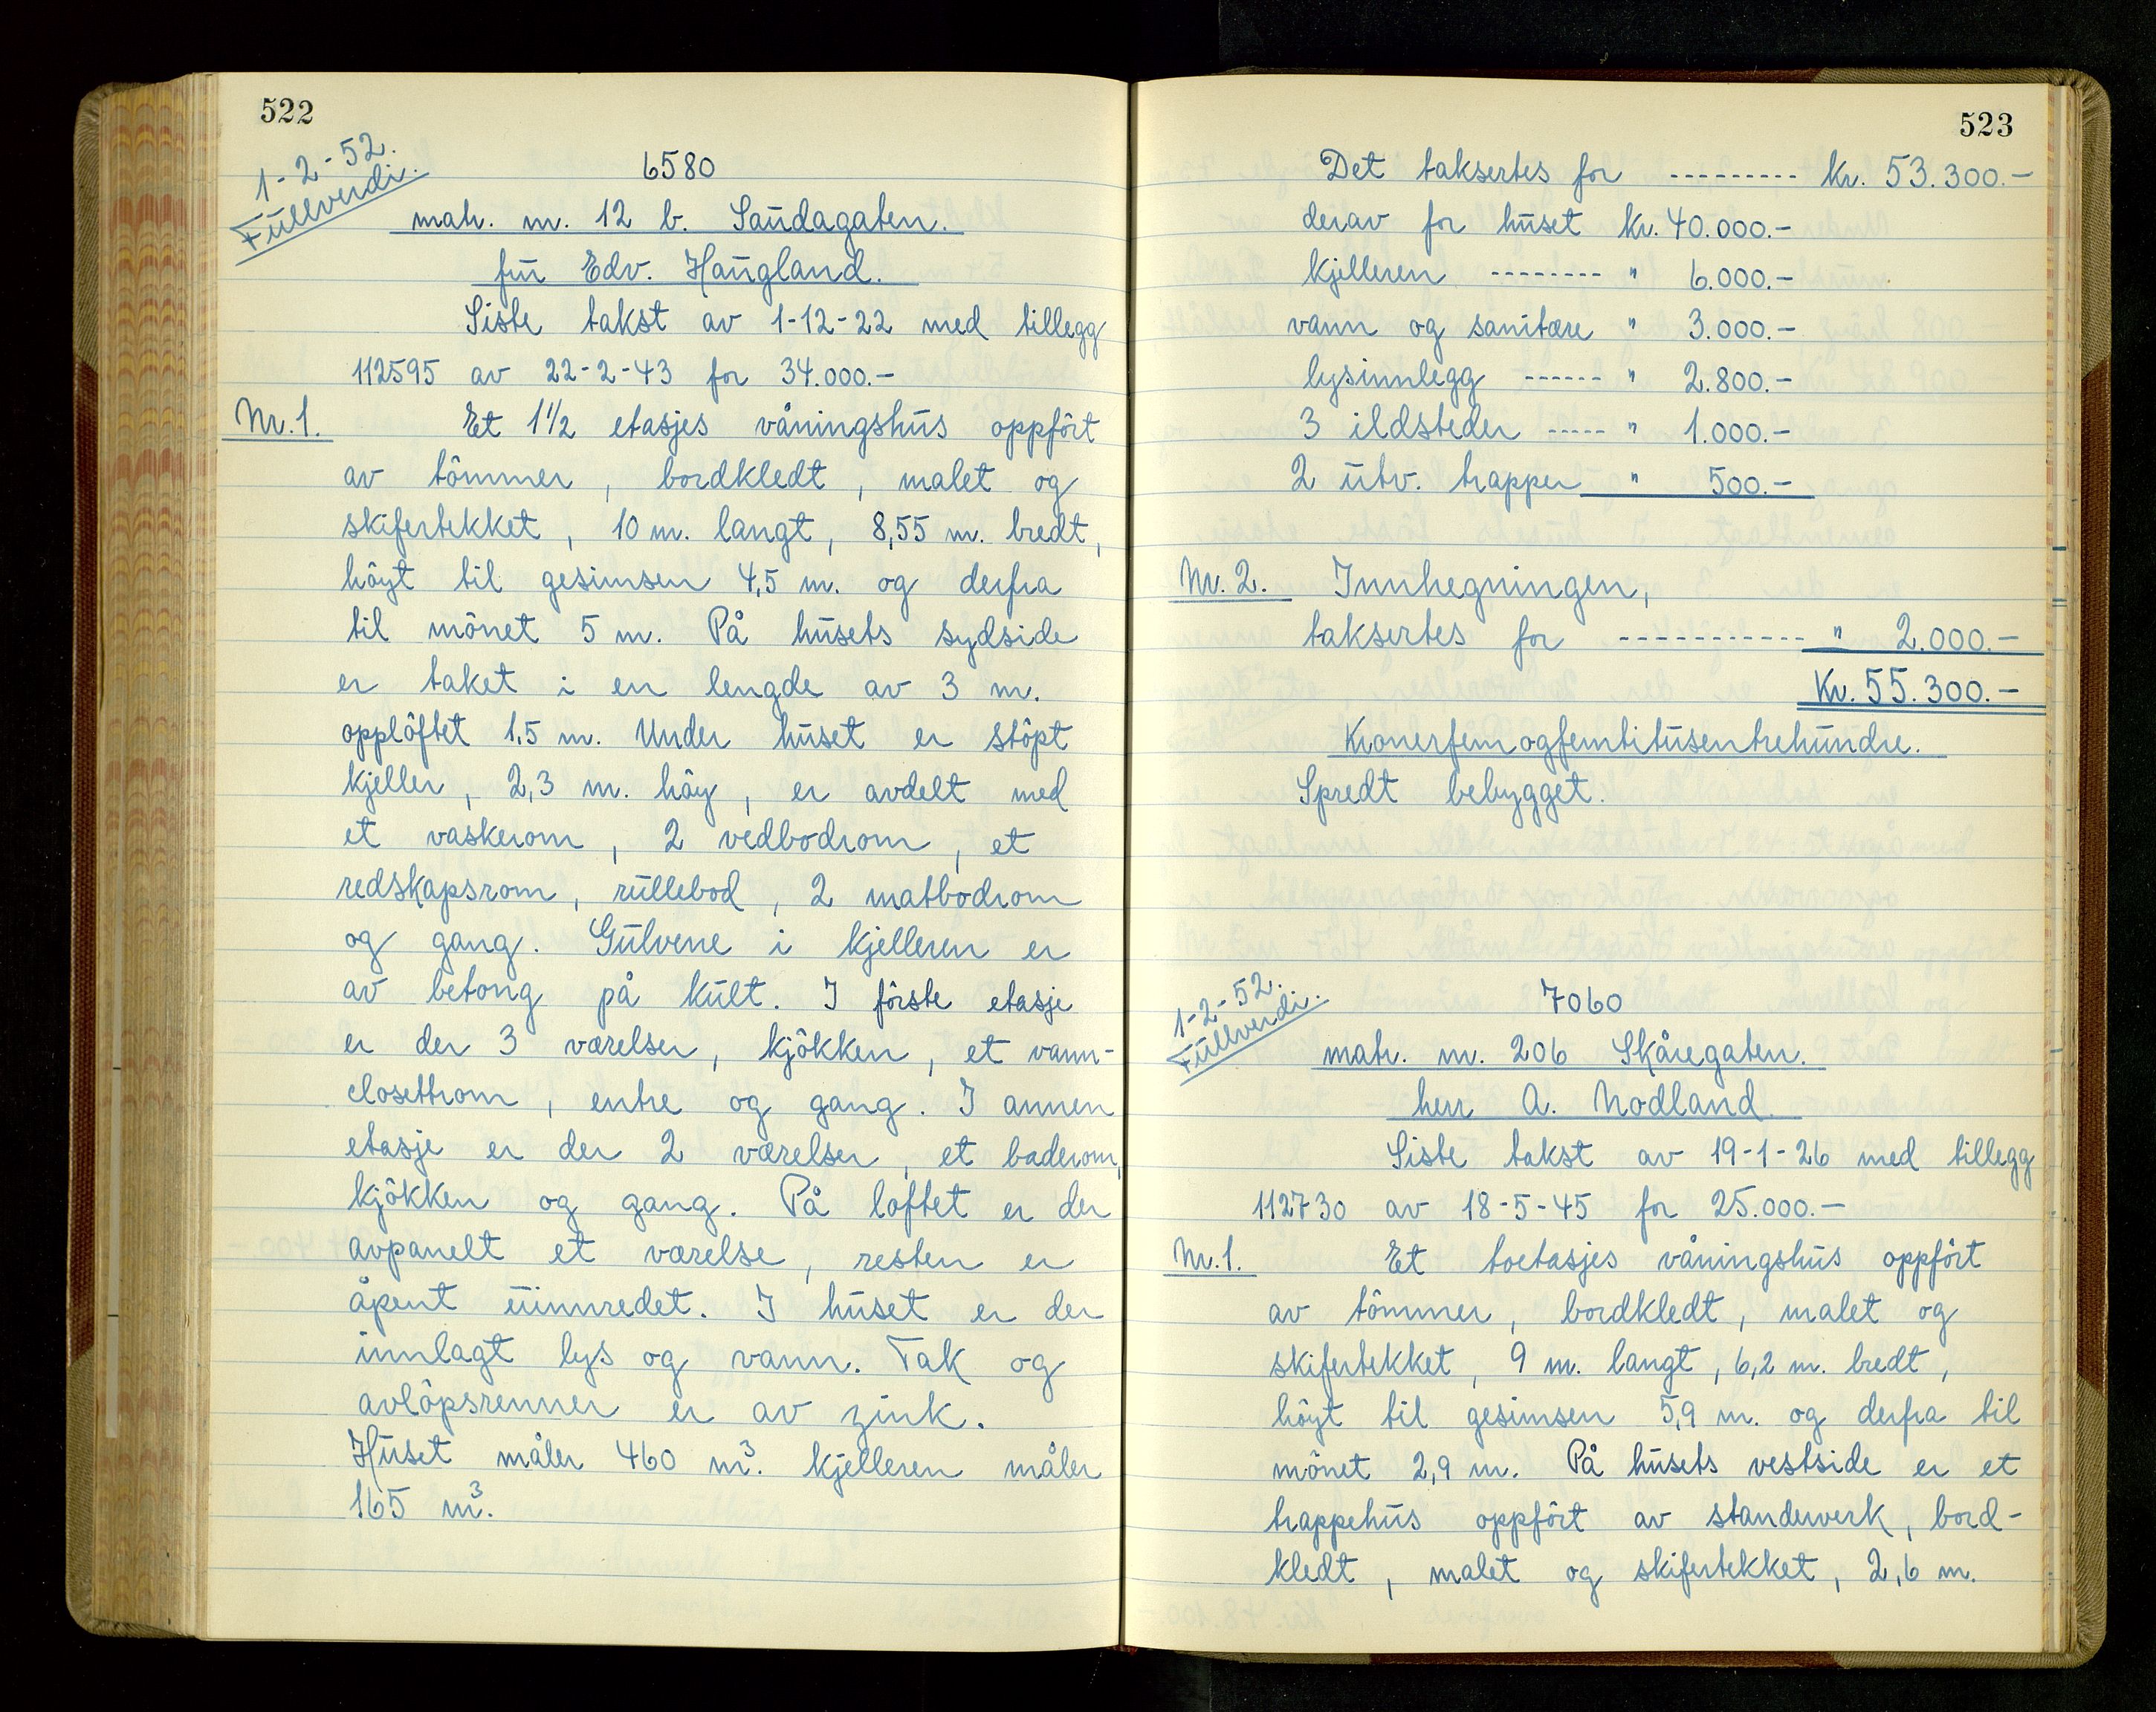 522
1-2-52.
Fullverdi.
6580
matr. nr. 12 b. Saudagaten.
fru Edv. Haugland.
Siste takst av 1-12-22 med tillegg
112595 av 22-2-43 for 34.000.-
Nr. 1. Et 1½ etasjes våningshus oppført
av tømmer, bordkledt, malet og
skifertekket, 10 m. langt, 8,55 m. bredt,
høyt til gesimsen 4,5 m. og derfra
til mønet 5 m. På husets sydside
er taket i en lengde av 3 m.
oppløftet 1,5 m. Under huset er støpt
kjeller, 2,3 m. høy, er avdelt med
et vaskerom, 2 vedbodrom, et
redskapsrom, rullebod, 2 matbodrom
og gang. Gulvene i kjelleren er
av betong på kult. I første etasje
er der 3 værelser, kjøkken, et vann-
closettrom, entre og gang. I annen
etasje er der 2 værelser, et baderom,
kjøkken og gang. På loftet er der
avpanelt et værelse, resten er
åpent uinnredet. I huset er der
innlagt lys og vann. Tak og
avløpsrenner er av zink.
Huset måler 460 m³. kjelleren måler
165 m³.
523
Det taksertes for --------- kr. 53.300.-
derav for huset kr. 40.000.-
kjelleren -------- " 6.000.-
vann og sanitære " 3.000.-
lysinnlegg ------ " 2.800.-
3 ildsteder ----- " 1.000.-
2 utv. trapper " 500.-
Nr. 2. Innhegningen,
taksertes for ----------- " 2.000.-
Kr. 55.300.-
Kronerfemogfemtitusentrehundre.
Spredt bebygget.
1-2-52.
Fullverdi.
7060
matr. nr. 206 Skåregaten.
herr A. Nodland.
Siste takst av 19-1-26 med tillegg
112730 av 18-5-45 for 25.000.-
Nr. 1. Et toetasjes våningshus oppført
av tømmer, bordkledt, malet og
skifertekket, 9 m. langt, 6,2 m. bredt,
høyt til gesimsen 5,9 m. og derfra til
mønet 2,9 m. På husets vestside er et
trappehus oppført av standerverk, bord-
kledt, malet og skifertekket, 2,6 m.